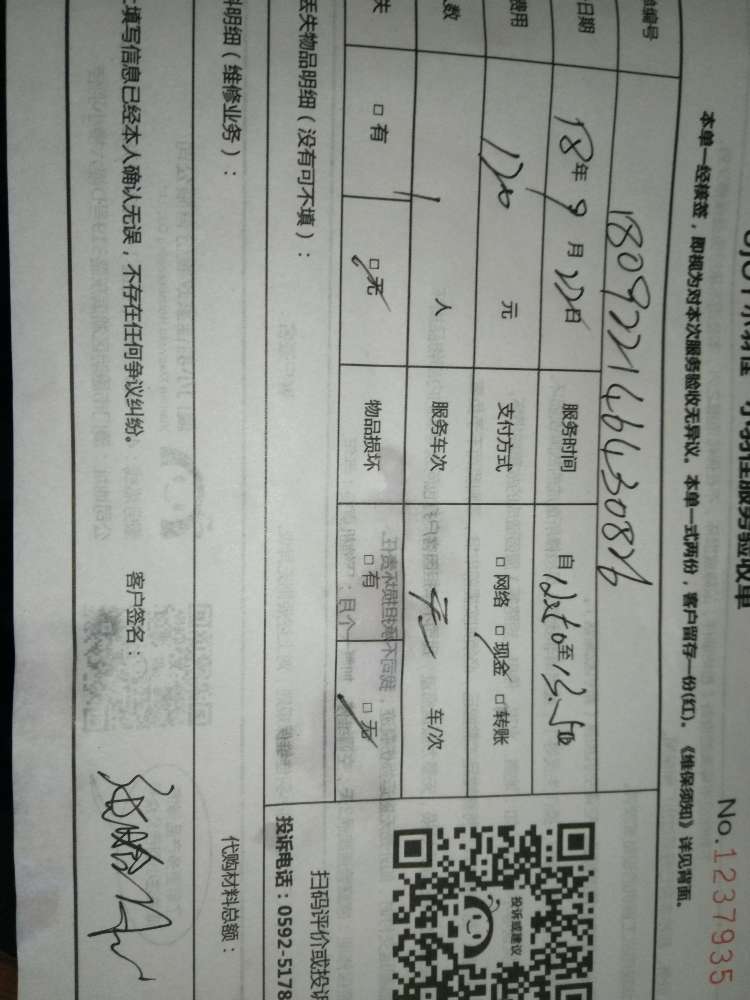 服务验收单
No.1237935
本单一经核签，即视为对本次服务验收无异议。本单一式两份，客户留存一份(红)。《维保须知》详见背面。
编号 180922146430876
日期 18年9月22日 服务时间 自 至
费用 120 元 支付方式 □网络 □现金 □转账
人数 1 人 服务车次 无 车/次
失 □有 □无 物品损坏 □有 □无
丢失物品明细（没有可不填）：
投诉或建议
扫码评价或投诉
投诉电话：0592-5178
料明细（维修业务）：
代购材料总额：
填写信息已经本人确认无误，不存在任何争议纠纷。 客户签名：